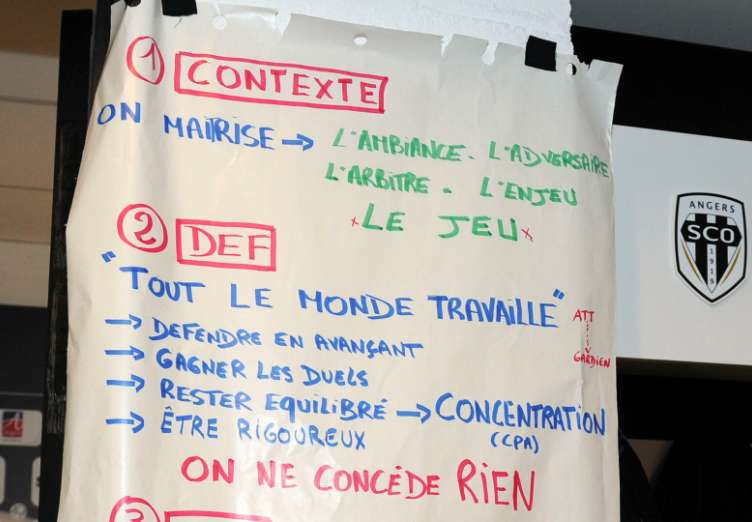 ① CONTEXTE
ON MAITRISE → L'AMBIANCE - L'ADVERSAIRE
L'ARBITRE - L'ENJEU
x LE JEU x
② DEF
"TOUT LE MONDE TRAVAILLE"
ATT
GARDIEN
→ DEFENDRE EN AVANÇANT
→ GAGNER LES DUELS
→ RESTER EQUILIBRÉ → CONCENTRATION
(CPA)
→ ÊTRE RIGOUREUX
ON NE CONCÈDE RIEN
③
ANGERS
SCO
1919